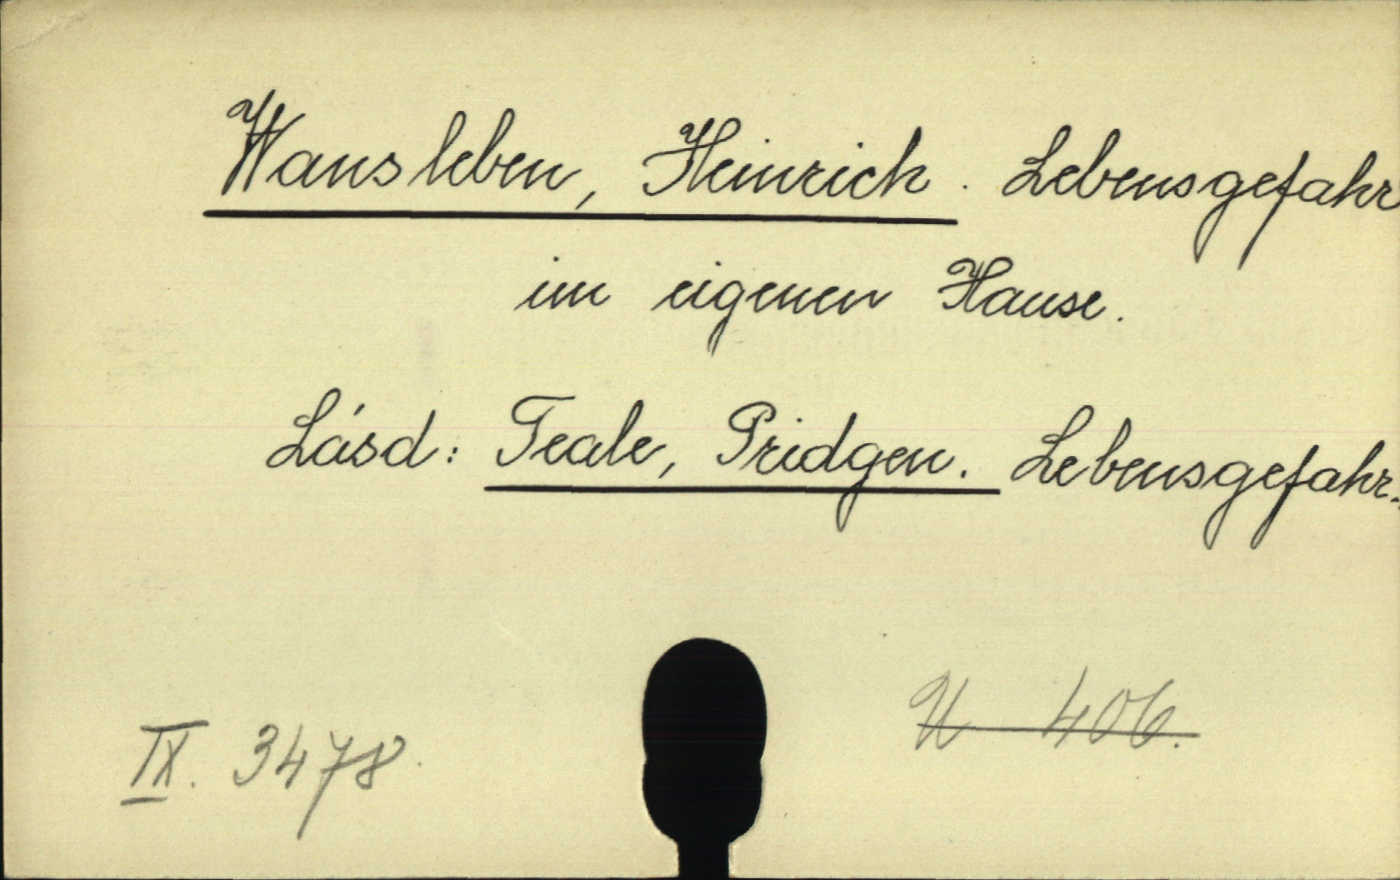 Wansleben, Heinrich. Lebensgefahr
im eigenen Hause.
Lásd: Teale, Pridgen. Lebensgefahr.
IX. 3478
U 406.